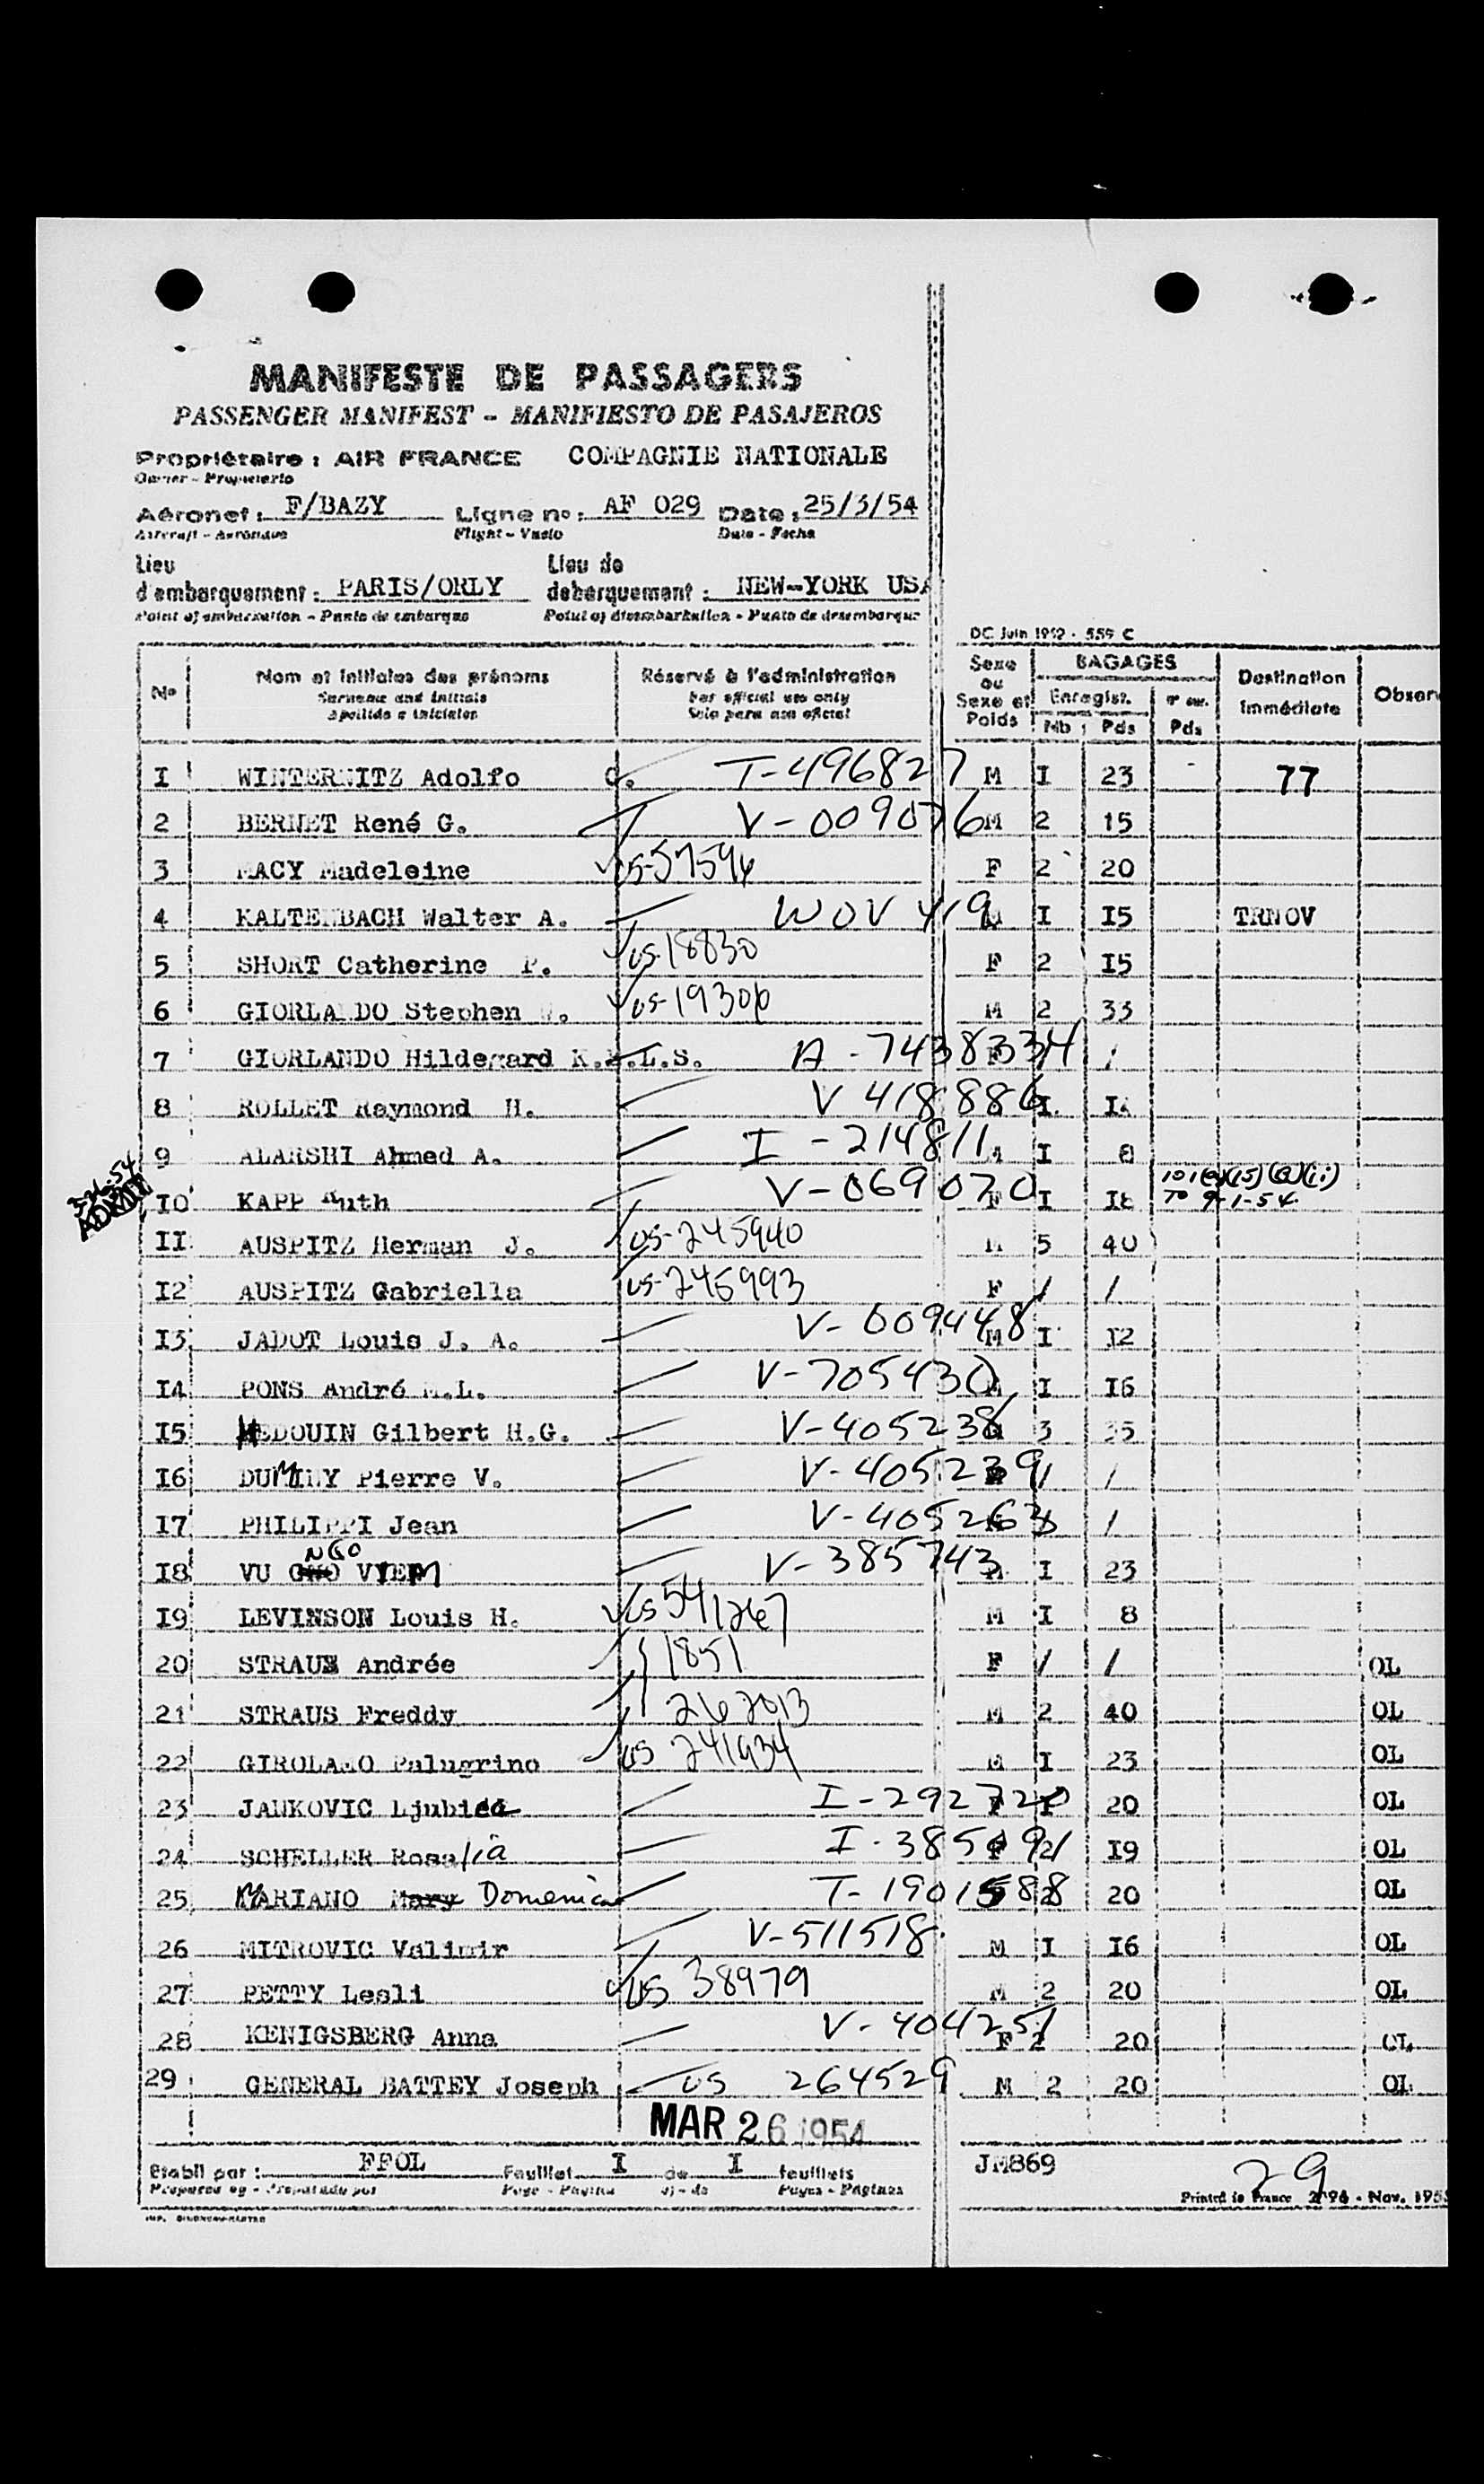 MANIFESTE DE PASSAGERS
PASSENGER MANIFEST - MANIFIESTO DE PASAJEROS
Propriétaire : AIR FRANCE COMPAGNIE NATIONALE
Owner - Propietario
Aéronef : F/BAZY Ligne no : AF 029 Date : 25/3/54
Aircraft - Aeronave Flight - Vuelo Date - Fecha
Lieu d'embarquement : PARIS/ORLY Lieu de debarquement : NEW-YORK USA
Point of embarkation - Punto de embarque Point of disembarkation - Punto de desembarque
DC Juin 1952 - 559 C
No Nom et initiales des prénoms Réservé à l'administration Sexe ou Sexe et Poids BAGAGES Destination immédiate Observ
Surname and initials For official use only Enregist.
Apellido e iniciales Solo para uso oficial Nb Pds Pds
I WINTERNITZ Adolfo C. T-496827 M I 23 77
2 BERNET René G. V-009076 M 2 15
3 MACY Madeleine F 2 20
4 KALTENBACH Walter A. WOV 419 I I5 TRNOV
5 SHORT Catherine P. US-18830 F 2 I5
6 GIORLANDO Stephen W. US-19306 M 2 33
7 GIORLANDO Hildegard K. L.S. A-7438334 /
8 ROLLET Raymond H. V 418886 I
9 ALARSHI Ahmed A. I-214811 I 8
3-26-54 ADMIT
I0 KAPP Ruth V-069070 F I I8 101(a)(15)(a)(ii) TO 9-1-54
II AUSPITZ Herman J. US-245940 M 5 40
I2 AUSPITZ Gabriella US-245993 F / /
I3 JADOT Louis J. A. V-009448 M I I2
I4 PONS André M.L. V-705430 I I6
I5 HEDOUIN Gilbert H.G. V-405238 3 35
I6 DUMENY Pierre V. V-405239 / /
I7 PHILIPPI Jean V-405263 /
I8 VU NGO VIEM V-385743 I 23
I9 LEVINSON Louis H. US 541267 M I 8
20 STRAUS Andrée 1851 F / / OL
21 STRAUS Freddy 262013 M 2 40 OL
22 GIROLAMO Palugrino US 241934 M I 23 OL
23 JANKOVIC Ljubica I-292720 20 OL
24 SCHELLER Rosalia I-385 I9 OL
25 MARIANO Mary Domenica T-1901588 20 OL
26 MITROVIC Valimir V-511518 M I I6 OL
27 PETTY Lesli US 38979 M 2 20 OL
28 KENIGSBERG Anna V-404251 F 2 20 OL
29 GENERAL BATTEY Joseph US 264529 M 2 20 OL
MAR 26 1954
Etabli par : FPOL Feuillet I de I feuillets JM869
Prepared by - Preparado por Page - Pagina of - de Pages - Paginas
29
Printed in France 2796 - Nov. 195